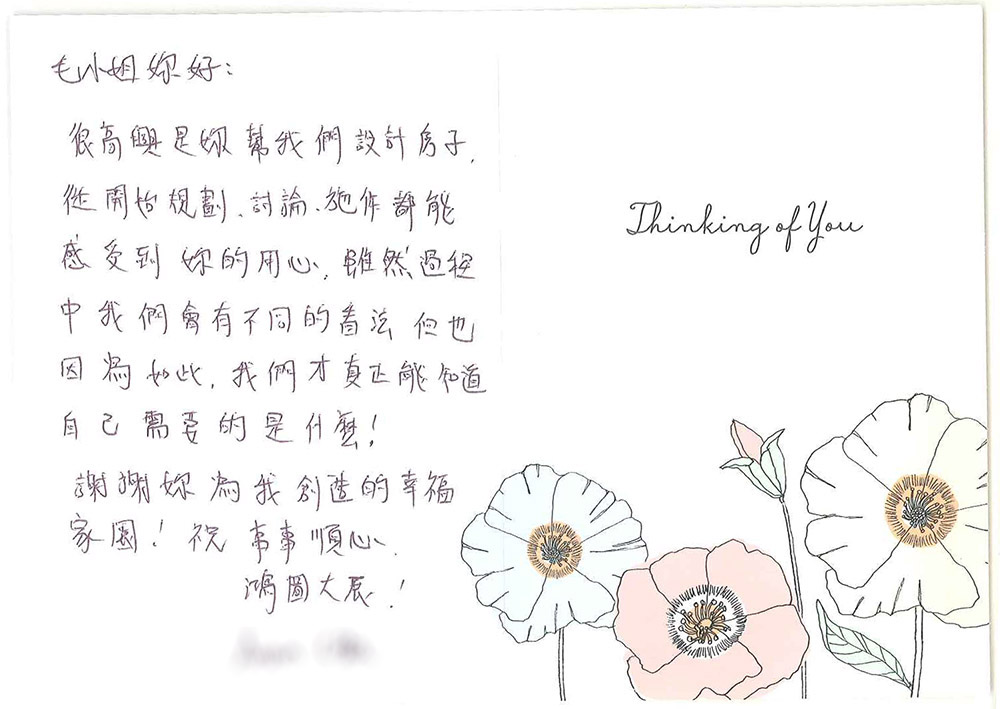 毛小姐妳好：
很高興是妳幫我們設計房子，
從開始規劃、討論、施作都能
感受到 妳的用心，雖然過程
中我們會有不同的看法 但也
因為如此，我們才真正能知道
自己需要的是什麼！
謝謝妳為我創造的幸福
家園！祝 事事順心、
鴻圖大展！
Thinking of You